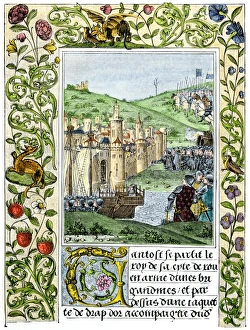 antost se partit le
roy de sa cyte de rou
en arme dunes bri
gandines / et par
dessus dune iaquet
te de drap dor acompaigne dud